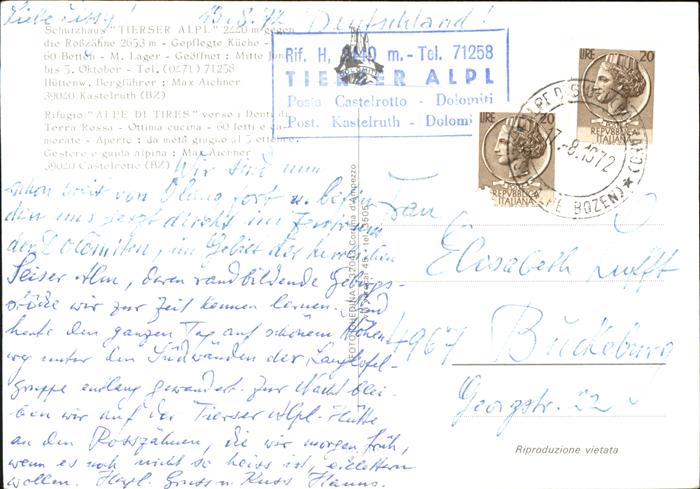 15.8.72 Deutschland!
Schutzhaus "TIERSER ALPL" 2440 m gegen
die Roßzähne 2653 m - Gepflegte Küche -
60 Betten - M. Lager - Geöffnet: Mitte Juni
bis 5. Oktober - Tel. (0471) 71258
Hüttenw. Bergführer: Max Aichner
39020 Kastelruth (BZ)
Rifugio "ALPE DI TIRES" verso i Denti di
Terra Rossa - Ottima cucina - 60 letti e
morate - Aperto: da metà giugno al 5 ottobre
Gestore e guida alpina: Max Aichner
39020 Castelrotto (BZ)
Rif. H. 2440 m. - Tel. 71258
TIERSER ALPL
Posta Castelrotto - Dolomiti
Post. Kastelruth - Dolomi
LIRE 20
REPVBBLICA
ITALIANA
LIRE 20
REPVBBLICA
ITALIANA
17.-8.1972
BOZEN)
Wir sind nun
schon weit von Olang fort u. befin-
den uns jetzt direkt im Zentrum
der Dolomiten, im Gebiet der herrlichen
Seiser Alm, deren randbildende Gebirgs-
wir zur Zeit kennen lernen. Sind
heute den ganzen Tag auf schönem Höhen-
weg unter den Südwänden der Langkofel-
gruppe entlang gewandert. Zur Nacht blei-
ben wir auf der Tierser Alpl-Hütte
an den Rosszähnen, die wir morgen früh,
wenn es noch nicht so heiss ist, erklettern
wollen. Herzl. Gruss u. Kuss Hanns.
Frau
Elisabeth
4967 Bückeburg
Georgstr. 22
Riproduzione vietata